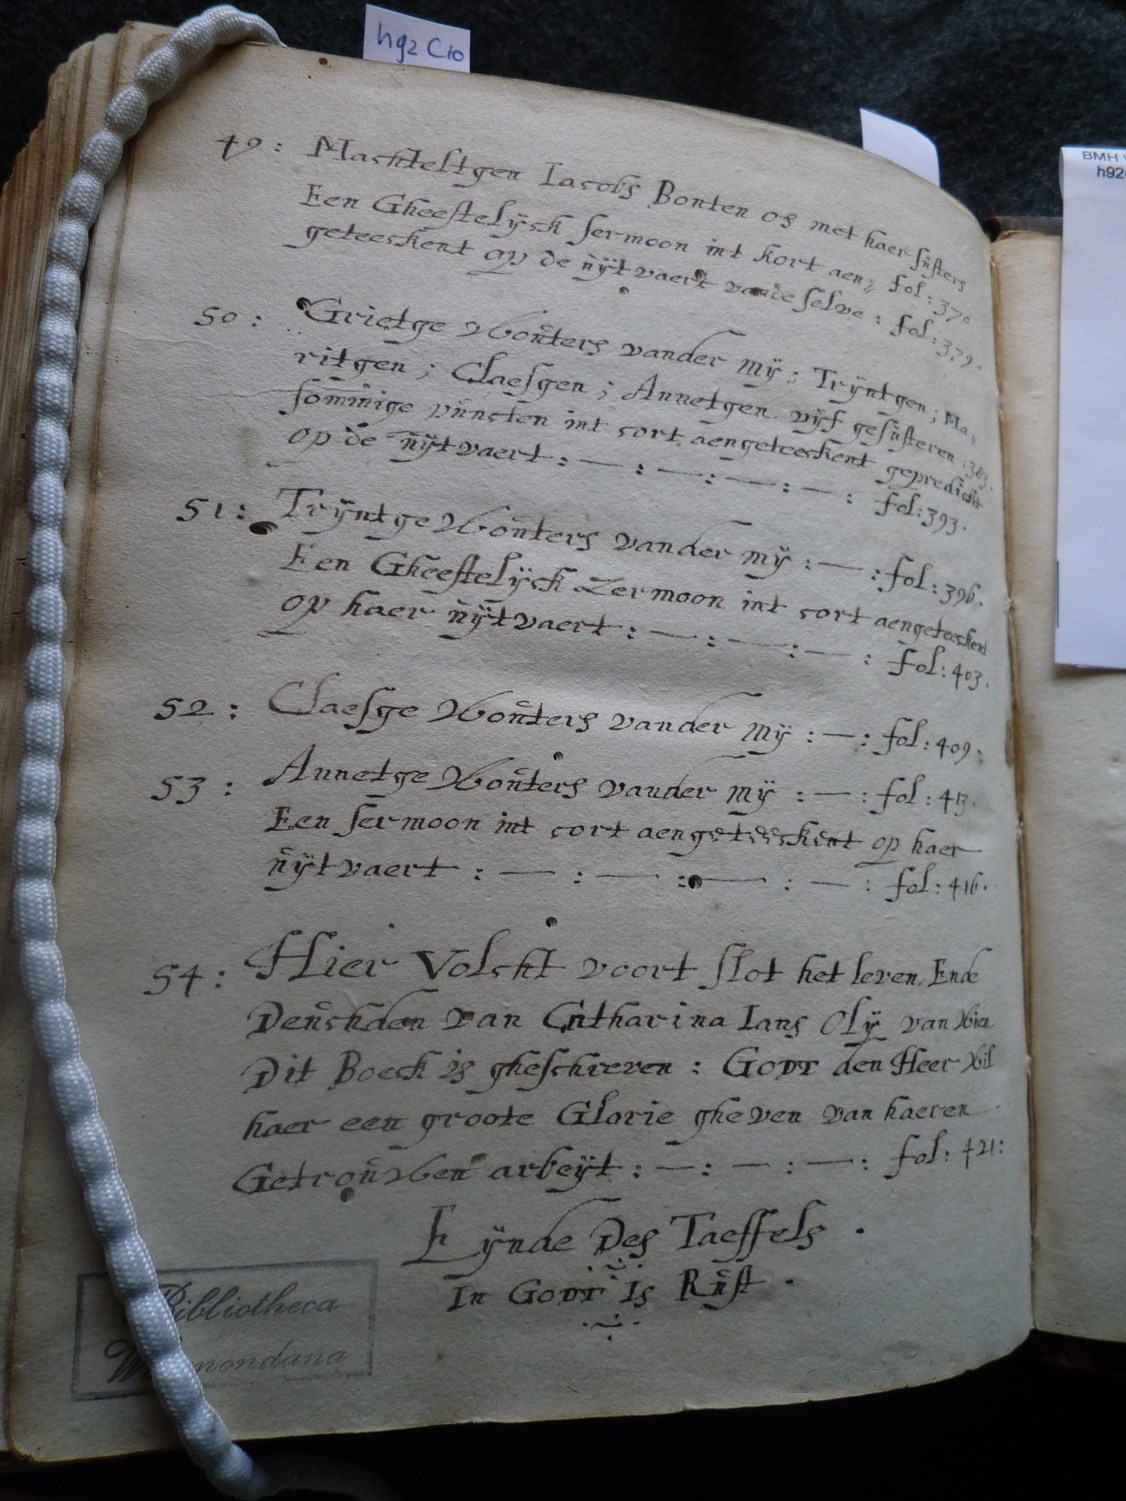 hg2 C10
BMH
h92
49 : Machteltgen Iacobs Bonten os met haer sùsters
Een Gheestelÿck sermoon int kort aen⹀ fol : 370
geteeckent op de ùÿtvaert vande selve : fol : 379.
50 : Grietge Woùters vander mÿ ; Trÿntgen ; Ma⹀
ritgen ; Claesgen ; Annetgen vÿf gesùsteren : 383.
sommige pùncten int cort aengeteeckent gepredickt
op de ùÿtvaert : — : — : — : — : fol : 393.
51 : Trÿntge Woùters vander mÿ : — : fol : 396.
Een Gheestelÿck Zermoon int cort aengeteeckent
op haer ùÿtvaert : — : — : — : fol : 403.
52 : Claesge Woùters vander mÿ : — : fol : 409.
53 : Annetge Woùters vander mÿ : — : fol : 413.
Een sermoon int cort aengeteeckent op haer
ùÿtvaert : — : — : — : — : fol : 416.
54 : Hier Volcht voort slot het leven, Ende
Deùchden van Catharina Ians Olÿ van Wien
Dit Boeck is gheschreven : Godt den Heer Wil
haer een groote Glorie gheven van haeren
Getroùwen arbeÿt : — : — : — : fol : 421 :
Eÿnde Des Taeffels .
In Godt Is Rùst .
Bibliotheca
Warmondana